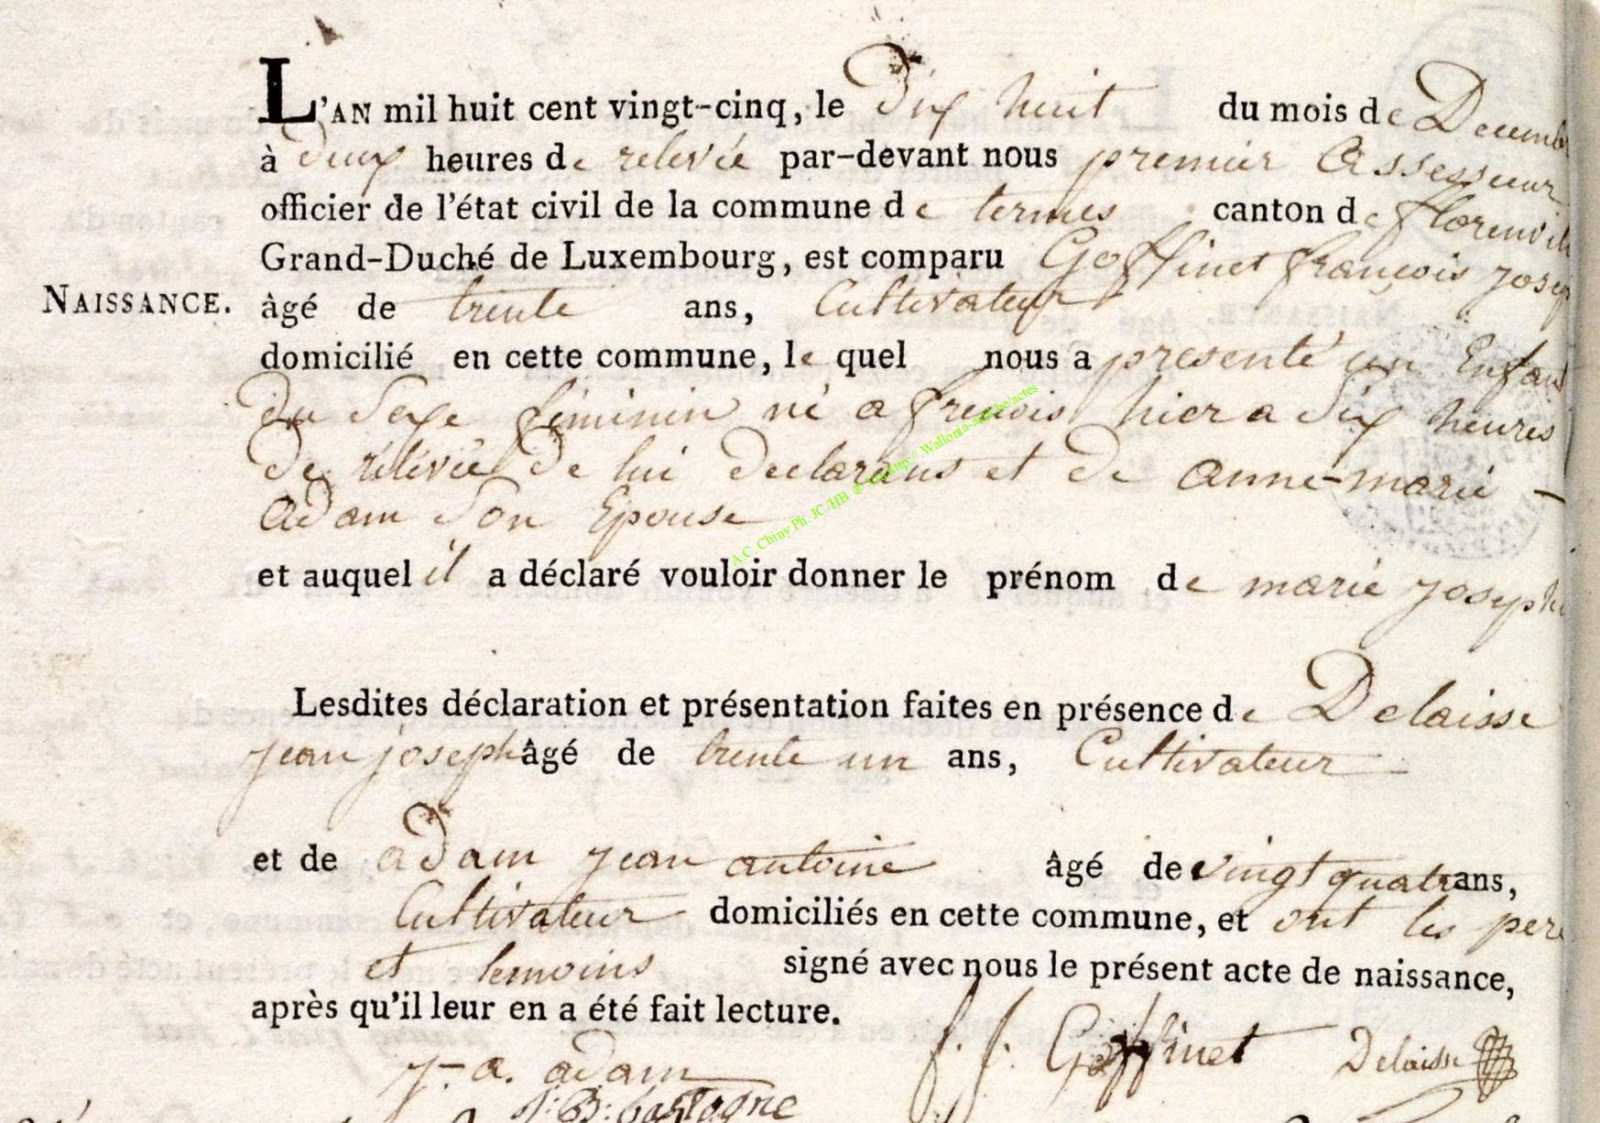 L'AN mil huit cent vingt-cinq, le Dix huit du mois de Decemb
à deux heures de relevée par-devant nous premier Assesseur
officier de l'état civil de la commune de termes canton de florenvil
Grand-Duché de Luxembourg, est comparu Goffinet françois josep
NAISSANCE. âgé de trente ans, Cultivateur
domicilié en cette commune, le quel nous a presenté un Enfant
Du Sexe féminin né a frenois hier a Six heures
De rélévée De lui declarans et de anne-marie -
Adam Son Epouse
A.C. Chiny Ph. JC./HB
et auquel il a déclaré vouloir donner le prénom de marie josephe
Lesdites déclaration et présentation faites en présence de Delaisse
jean joseph âgé de trente un ans, Cultivateur
et de adam jean antoine âgé de vingt quatre ans,
Cultivateur domiciliés en cette commune, et ont les pere
et temoins signé avec nous le présent acte de naissance,
après qu'il leur en a été fait lecture.
j. a. adam f. j. Goffinet Delaisse